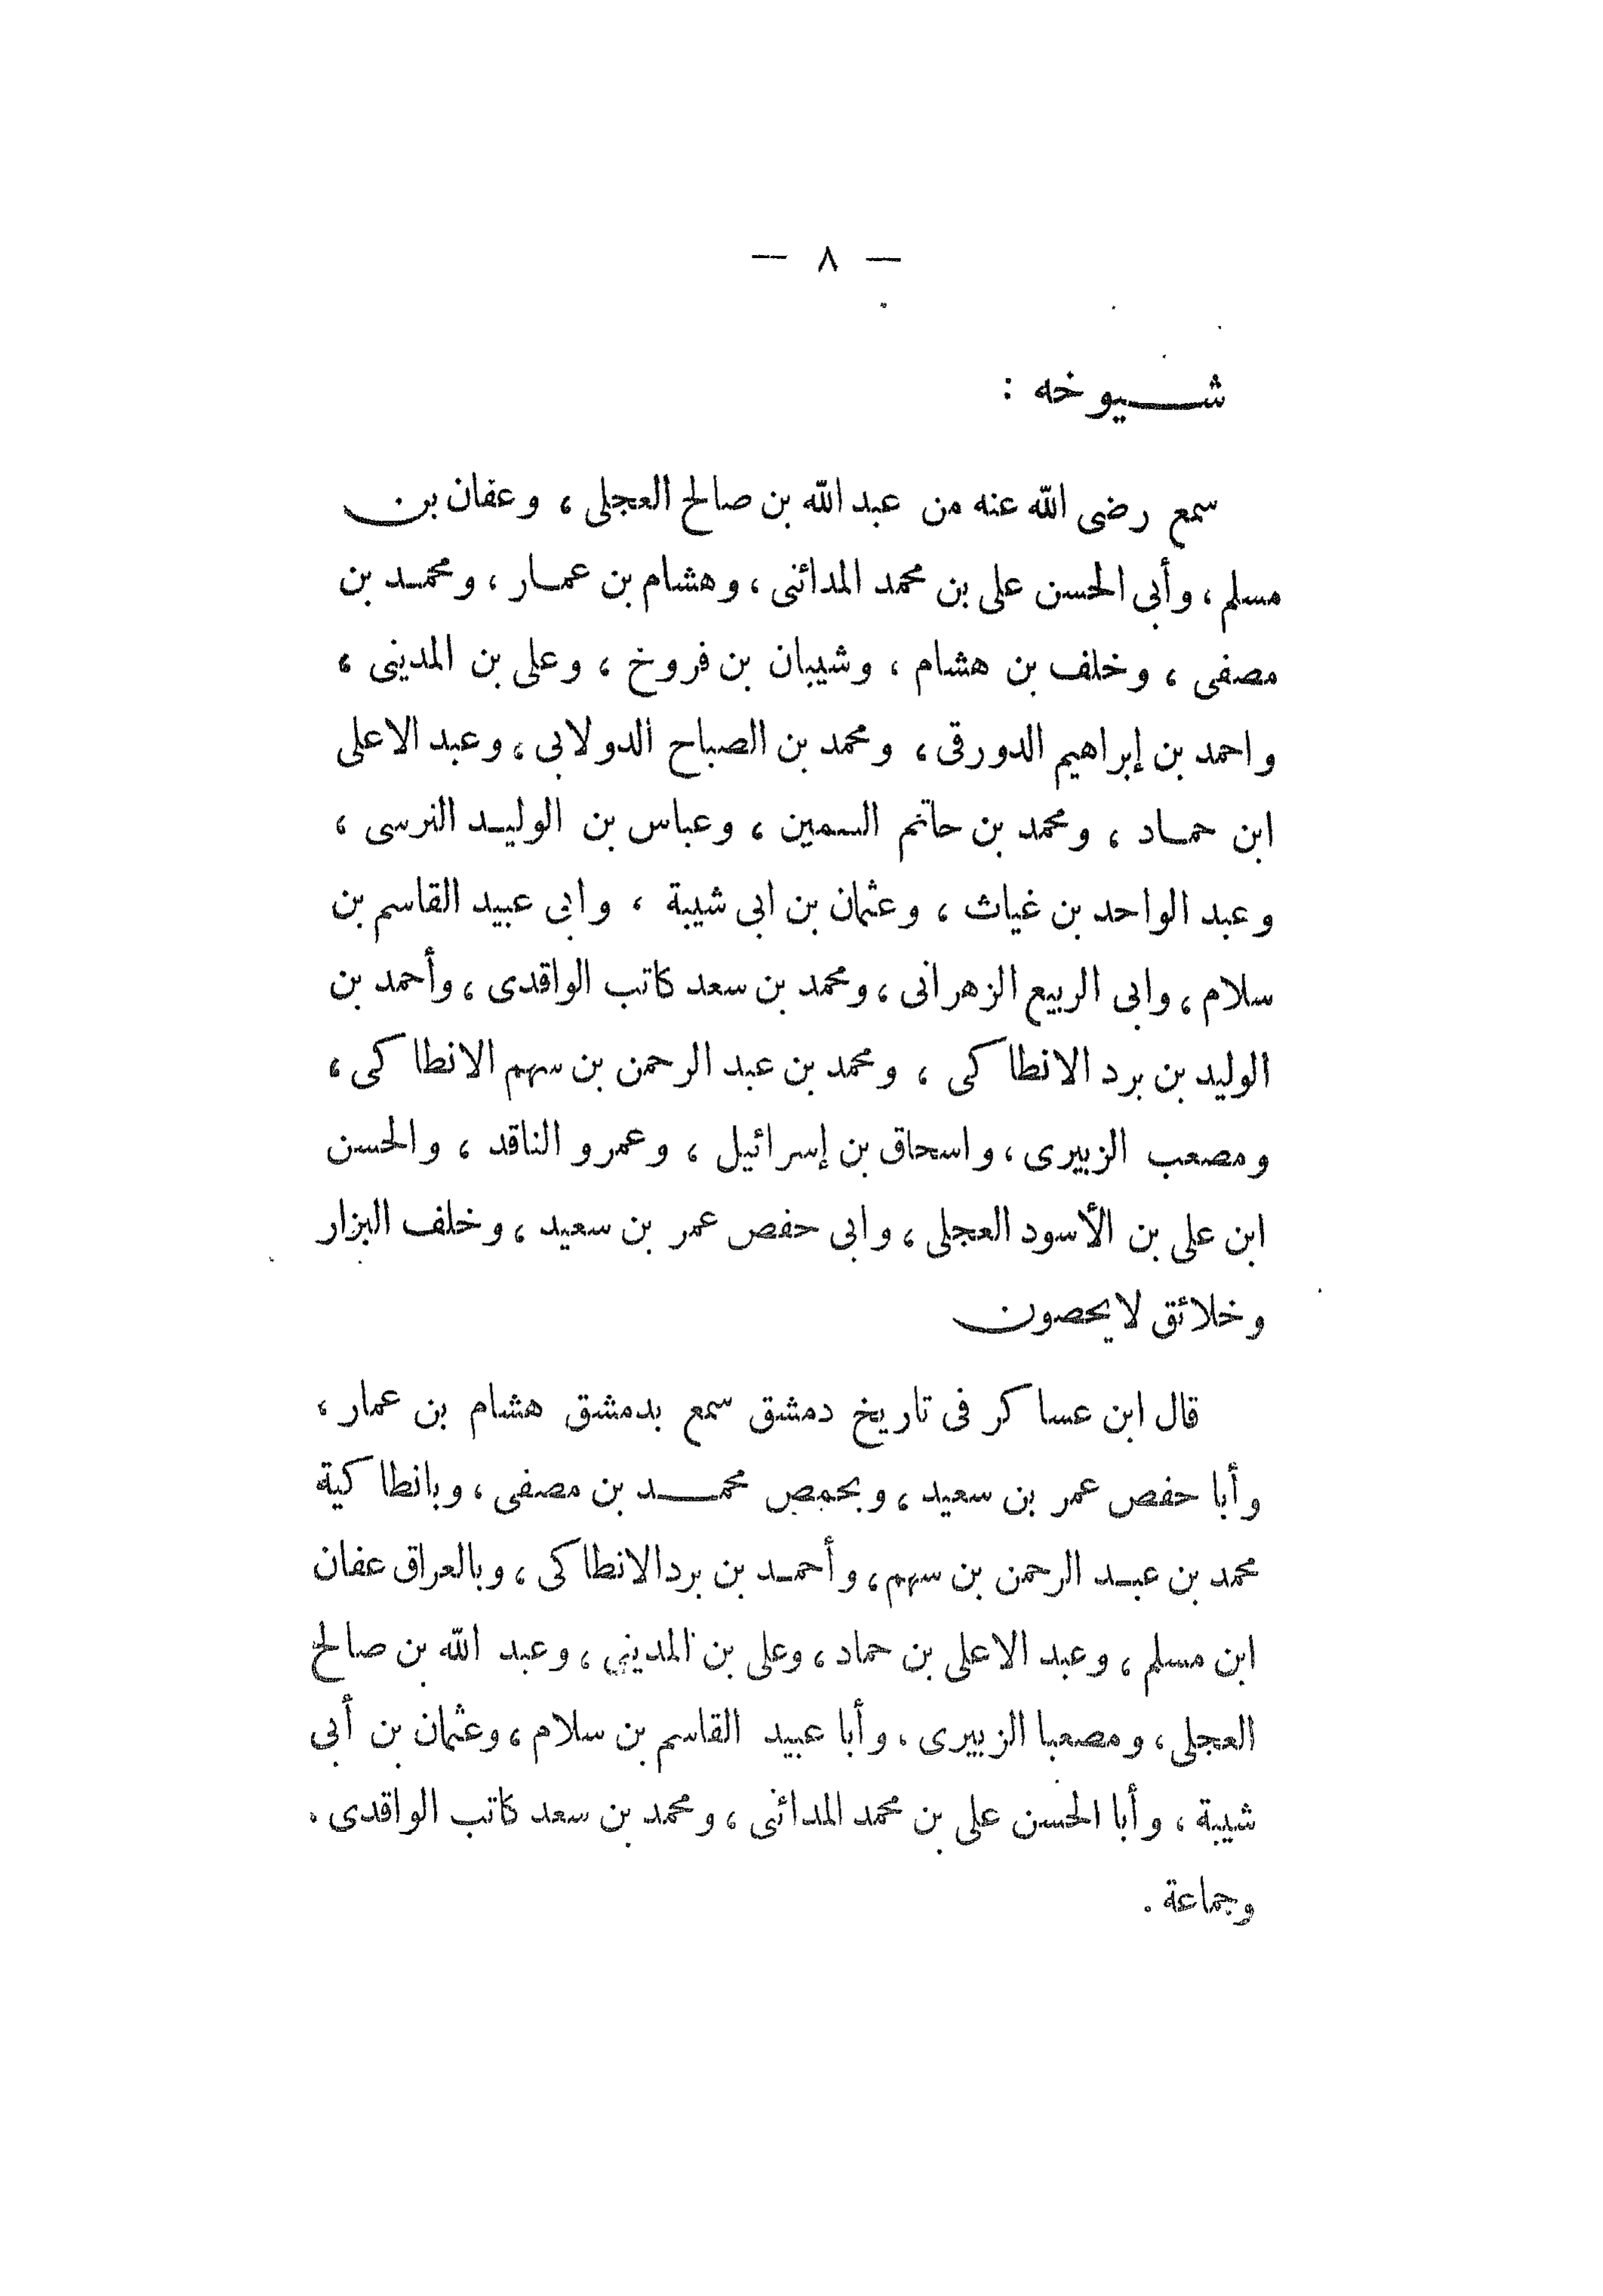 — ٨ —
شيوخه :
سمع رضى الله عنه من عبد الله بن صالح العجلى ، وعفان بن
مسلم ، وأبى الحسن على بن محمد المدائنى ، وهشام بن عمار ، ومحمد بن
مصفى ، وخلف بن هشام ، وشيبان بن فروخ ، وعلى بن المدينى ،
واحمد بن إبراهيم الدورقى ، ومحمد بن الصباح الدولابى ، وعبد الاعلى
ابن حماد ، ومحمد بن حاتم السمين ، وعباس بن الوليد النرسى ،
وعبد الواحد بن غياث ، وعثمان بن ابى شيبة ، وابى عبيد القاسم بن
سلام ، وابى الربيع الزهرانى ، ومحمد بن سعد كاتب الواقدى ، وأحمد بن
الوليد بن برد الانطاكى ، ومحمد بن عبد الرحمن بن سهم الانطاكى ،
ومصعب الزبيرى ، واسحاق بن إسرائيل ، وعمرو الناقد ، والحسن
ابن على بن الأسود العجلى ، وابى حفص عمر بن سعيد ، وخلف البزار
وخلائق لا يحصون
قال ابن عساكر فى تاريخ دمشق سمع بدمشق هشام بن عمار ،
وأبا حفص عمر بن سعيد ، وبحمص محمد بن مصفى ، وبانطاكية
محمد بن عبد الرحمن بن سهم ، وأحمد بن برد الانطاكى ، وبالعراق عفان
ابن مسلم ، وعبد الاعلى بن حماد ، وعلى بن المدينى ، وعبد الله بن صالح
العجلى ، ومصعبا الزبيرى ، وأبا عبيد القاسم بن سلام ، وعثمان بن أبى
شيبة ، وأبا الحسن على بن محمد المدائنى ، ومحمد بن سعد كاتب الواقدى .
وجماعة .